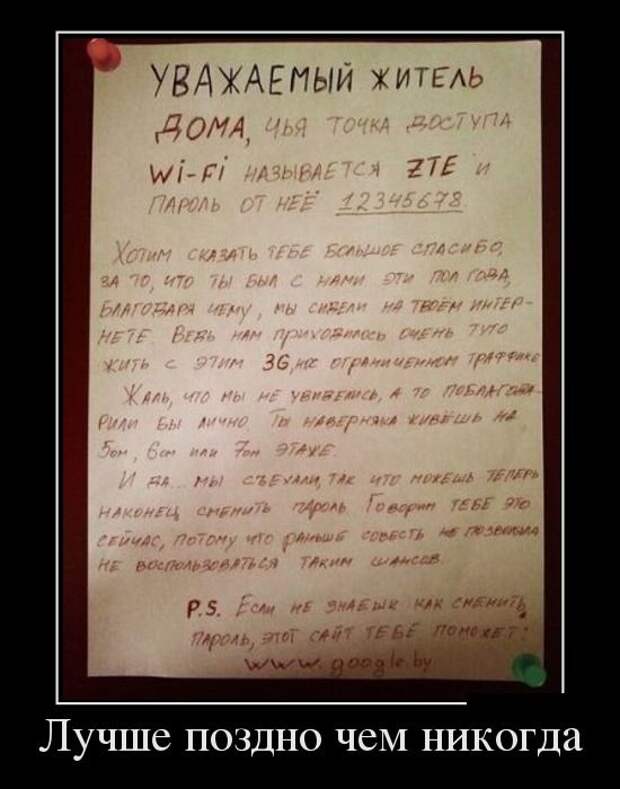 УВАЖАЕМЫЙ ЖИТЕЛЬ
ДОМА, ЧЬЯ ТОЧКА ДОСТУПА
Wi-Fi НАЗЫВАЕТСЯ ZTE И
ПАРОЛЬ ОТ НЕЁ 12345678.
ХОТИМ СКАЗАТЬ ТЕБЕ БОЛЬШОЕ СПАСИБО,
ЗА ТО, ЧТО ТЫ БЫЛ С НАМИ ЭТИ ПОЛ ГОДА,
БЛАГОДАРЯ ЧЕМУ, МЫ СИДЕЛИ НА ТВОЁМ ИНТЕР-
НЕТЕ. ВЕДЬ НАМ ПРИХОДИЛОСЬ ОЧЕНЬ ТУГО
ЖИТЬ С ЭТИМ 3G, ОГРАНИЧЕННОМ ТРАФФИКЕ
ЖАЛЬ, ЧТО МЫ НЕ УВИДЕЛИСЬ, А ТО ПОБЛАГОДА-
РИЛИ БЫ ЛИЧНО. ТЫ НАВЕРНЯКА ЖИВЁШЬ НА
5ом, 6ом ИЛИ 7ом ЭТАЖЕ.
И ДА... МЫ СЪЕХАЛИ, ТАК ЧТО МОЖЕШЬ ТЕПЕРЬ
НАКОНЕЦ СМЕНИТЬ ПАРОЛЬ. ГОВОРИМ ТЕБЕ ЭТО
СЕЙЧАС, ПОТОМУ ЧТО РАНЬШЕ СОВЕСТЬ НЕ ПОЗВОЛИЛА
НЕ ВОСПОЛЬЗОВАТЬСЯ ТАКИМ ШАНСОВ.
P.S. ЕСЛИ НЕ ЗНАЕШЬ КАК СМЕНИТЬ
ПАРОЛЬ, ЭТОТ САЙТ ТЕБЕ ПОМОЖЕТ:
www.google.by
Лучше поздно чем никогда